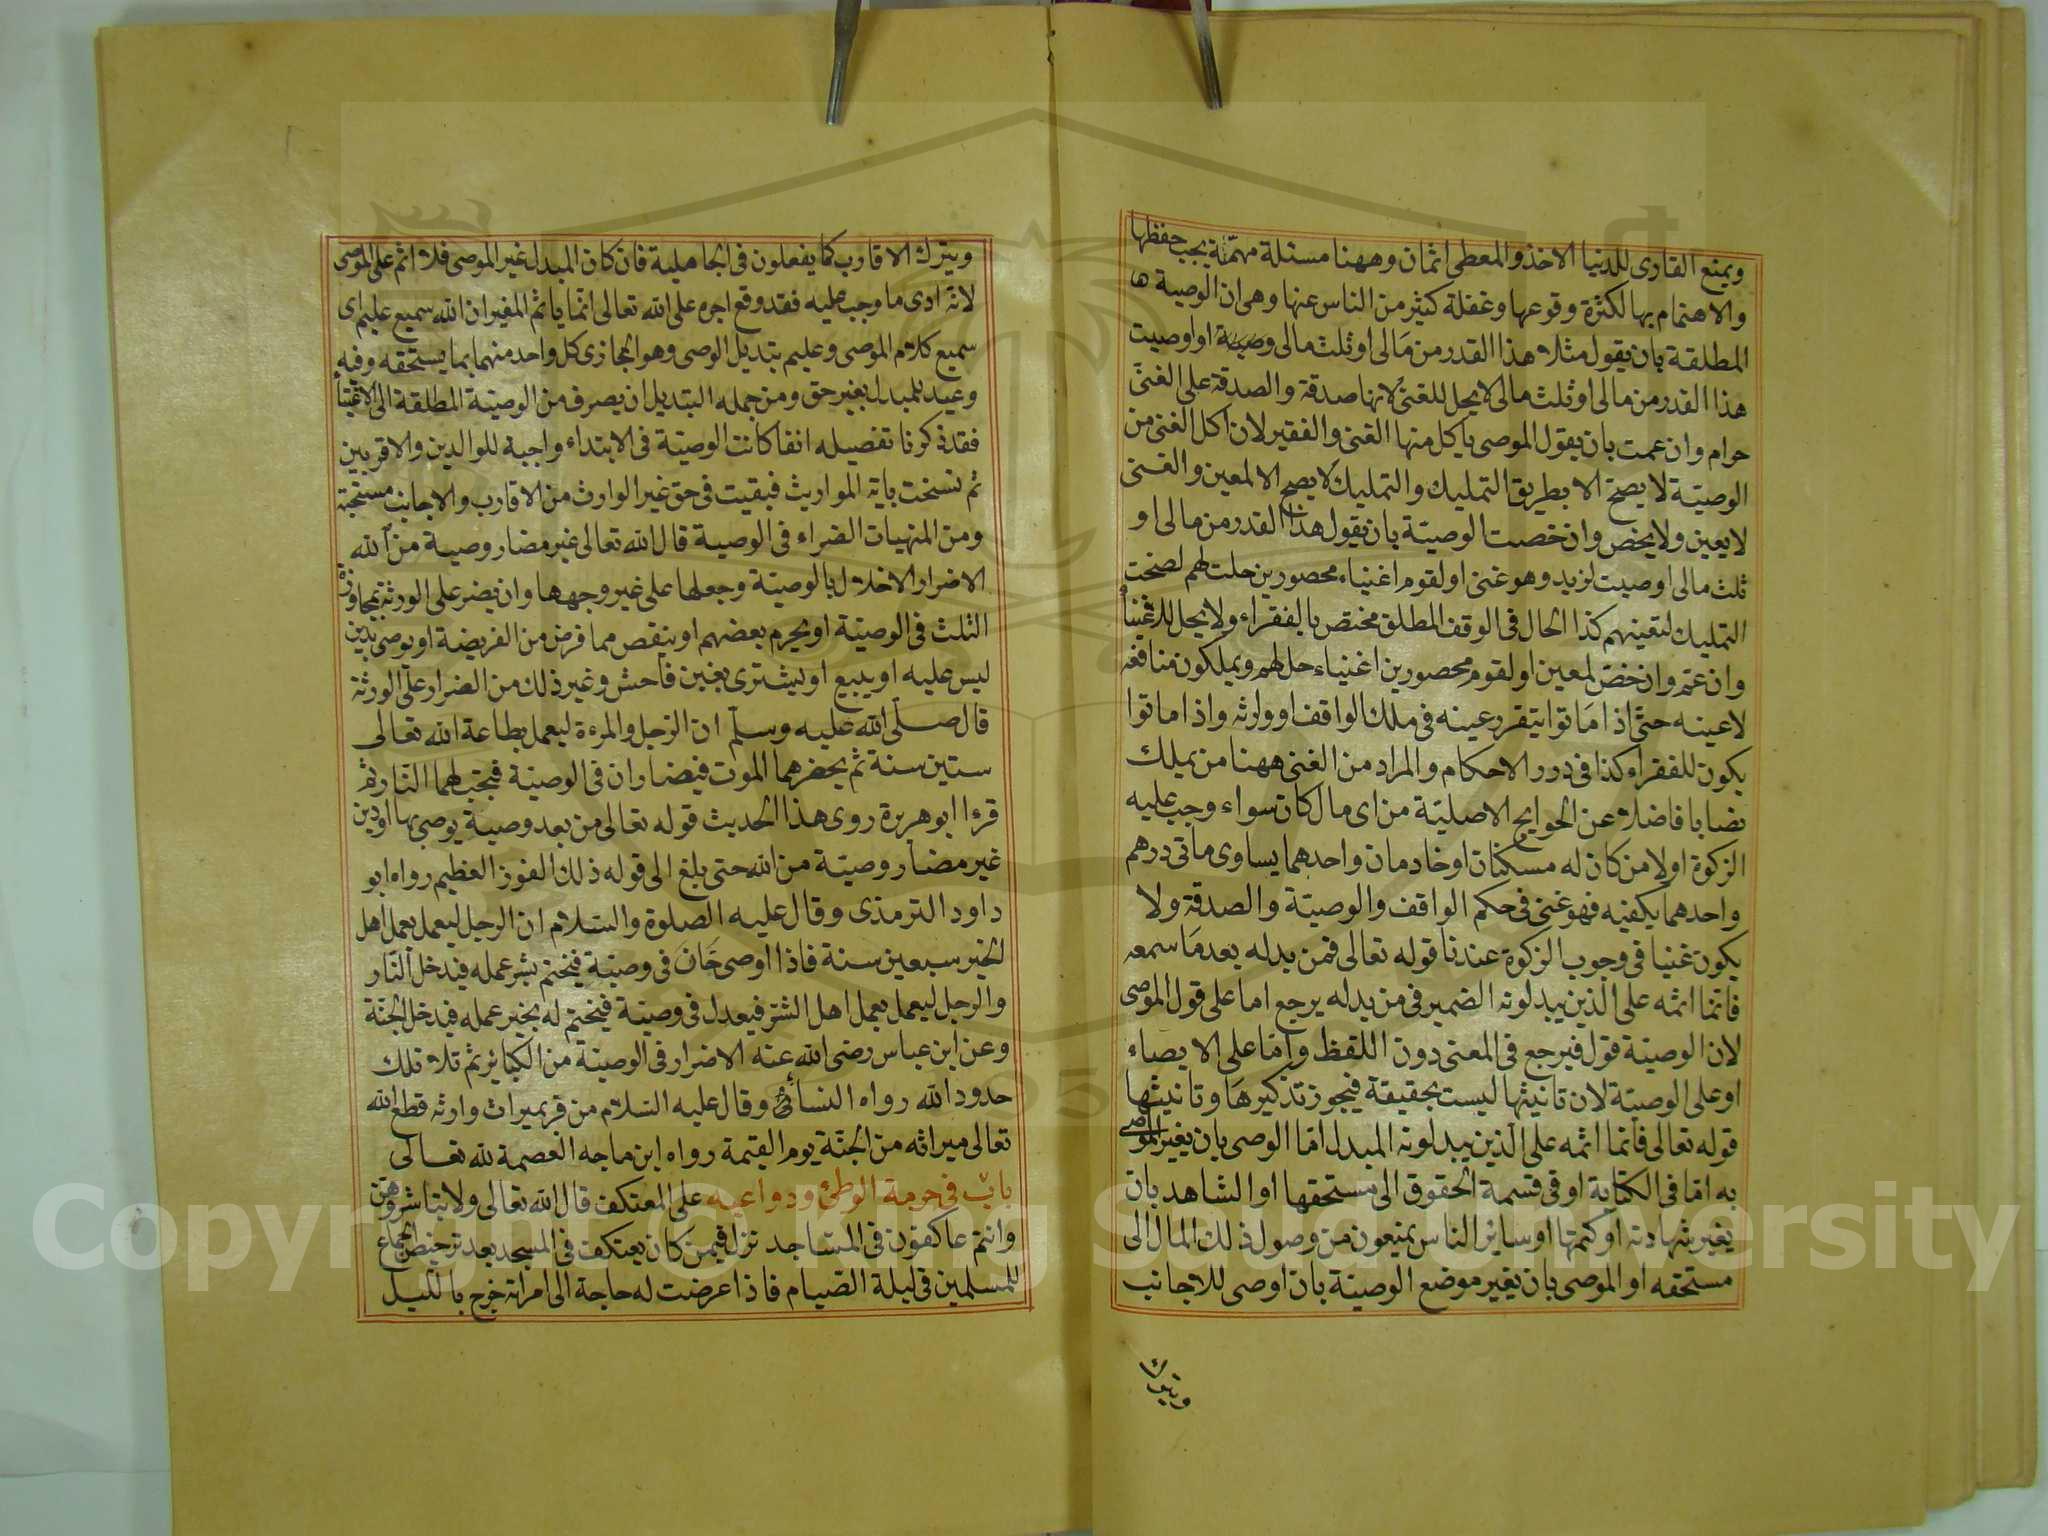 ويمنع القارى للدنيا الاخذ والمعطى اثمان وههنا مسئلة مهمّة يجب حفظها
والاهتمام بها لكثرة وقوعها وغفلة كثير من الناس عنها وهى ان الوصية
المطلقة بان يقول مثلا هذا القدر من مالى او ثلث مالى وصية او اوصيت
هذا القدر من مالى او ثلث مالى لا يحل للغنى لانها صدقة والصدقة على الغنى
حرام وان عممت بان يقول الموصى ياكل منها الغنى والفقير لان اكل الغنى من
الوصيّة لا يصح الا بطريق التمليك والتمليك لا يصح الا لمعين والغنى
لا يعين ولا يخص وان خصت الوصيّة بان يقول هذا القدر من مالى او
ثلث مالى اوصيت لزيد وهو غنى او لقوم اغنياء محصورين حلت لهم لصحت
التمليك لتعينهم كذا الحال فى الوقف المطلق مختص بالفقراء ولا يحل للاغنياء
وان عمّ وان خصّ لمعين او لقوم محصورين اغنياء حل لهم ويملكون منافعه
لا عينه حتى اذا ماتوا يتقرر عينه فى ملك الواقف او وارثه واذا ماتوا
يكون للفقراء كذا فى درر الاحكام والمراد من الغنى ههنا من يملك
نصابا فاضلا عن الحوايج الاصليّة من اى مال كان سواء وجب عليه
الزكوة اولا من كان له مسكنان او خادمان واحدهما يساوى مأتى درهم
واحدهما يكفيه فهو غنى فى حكم الواقف والوصيّة والصدقة ولا
يكون غنيا فى وجوب الزكوة عندنا قوله تعالى فمن بدله بعد ما سمعه
فانما اثمه على الّذين يبدلونه الضمير فى من بدله يرجع اما على قول الموصى
لان الوصيّة قول فيرجع فى المعنى دون اللفظ واما على الايصاء
او على الوصيّة لان تانيثها ليست بحقيقة فيجوز تذكيرها وتانيثها
قوله تعالى فانما اثمه على الّذين يبدلونه المبدل امّا الوصى بان يغير الموصى
به امّا فى الكتابة او فى قسمة الحقوق الى مستحقها او الشاهد بان
يغير شهادته او كتمها او سائر الناس يمنعون من وصول ذلك المال الى
مستحقه او الموصى بان يغير موضع الوصيّة بان اوصى للاجانب
ويترك
ويترك الاقارب كما يفعلون فى الجاهلية فان كان المبدل غير الموصى فلا اثم على الموصى
لانه ادى ما وجب عليه فقد وقع اجره على الله تعالى انما ياثم المغير ان الله سميع عليم اى
سميع كلام الموصى وعليم بتديل الوصى وهو المجازى كل واحد منهما بما يستحقه وفيه
وعيد للمبدل بغير حق ومن جمله التبديل ان يصرف من الوصيّة المطلقة الى الاغنياء
فقد ذكرنا تفصيله انفا كانت الوصيّة فى الابتداء واجبة للوالدين والاقربين
ثم نسخت باية المواريث فبقيت فى حق غير الوارث من الاقارب والاجانب مستحبّة
ومن المنهيات الضراء فى الوصية قال الله تعالى غير مضار وصية من الله
الاضرار الاخلال بالوصيّة وجعلها على غير وجهها وان يضر على الورثة بمجاوزة
الثلث فى الوصيّة او يحرم بعضهم او ينقص مما فرض من الفريضة او يوصى بدين
ليس عليه او يبيع او يشترى بغبن فاحش وغير ذلك من الضرار على الورثة
قال صلّى الله عليه وسلّم ان الرجل والمرءة ليعمل بطاعة الله تعالى
ستين سنة ثم يحضرهما الموت فيضاران فى الوصيّة فيجب لهما النّار ثم
قرءا ابو هريرة روى هذا الحديث قوله تعالى من بعد وصية يوصى بها او دين
غير مضار وصيّة من الله حتى بلغ الى قوله ذلك الفوز العظيم رواه ابو
داود الترمذى وقال عليه الصلوة والسّلام ان الرجل ليعمل بعمل اهل
الخير سبعين سنة فاذا اوصى خان فى وصيّة فيختم بشر عمله فيدخل النّار
والرجل ليعمل بعمل اهل الشر فيعدل فى وصيّة فيختم له بخير عمله فيدخل الجنّة
وعن ابن عباس رضى الله عنه الاضرار فى الوصيّة من الكبائر ثم تلا تلك
حدود الله رواه النسائى وقال عليه السّلام من فر بميراث وارثه قطع الله
تعالى ميراثه من الجنّة يوم القيمة رواه ابن ماجه العصمة لله تعالى
بابٌ فى حرمة الوطئ ودواعيه على المعتكف قال الله تعالى ولا تباشروهنّ
وانتم عاكفون فى المساجد نزل فيمن كان يعتكف فى المسجد بعد ترخيص الجماع
للمسلمين فى ليلة الصّيام فاذا عرضت له حاجة الى امراته خرج بالليل
Copyright © King Saud University